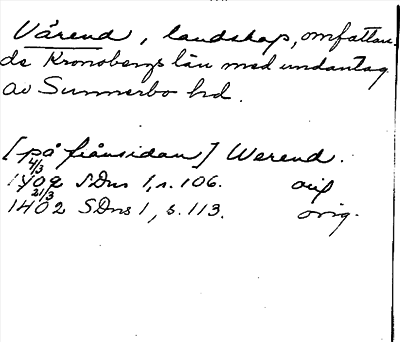 Värend, landskap, omfattan-
de Kronobergs län med undantag
av Sunnerbo hd.
[på frånsidan] Werend.
4/3
1402 SDns 1, s. 106. orig
21/3
1402 SDns 1, s. 113. orig.